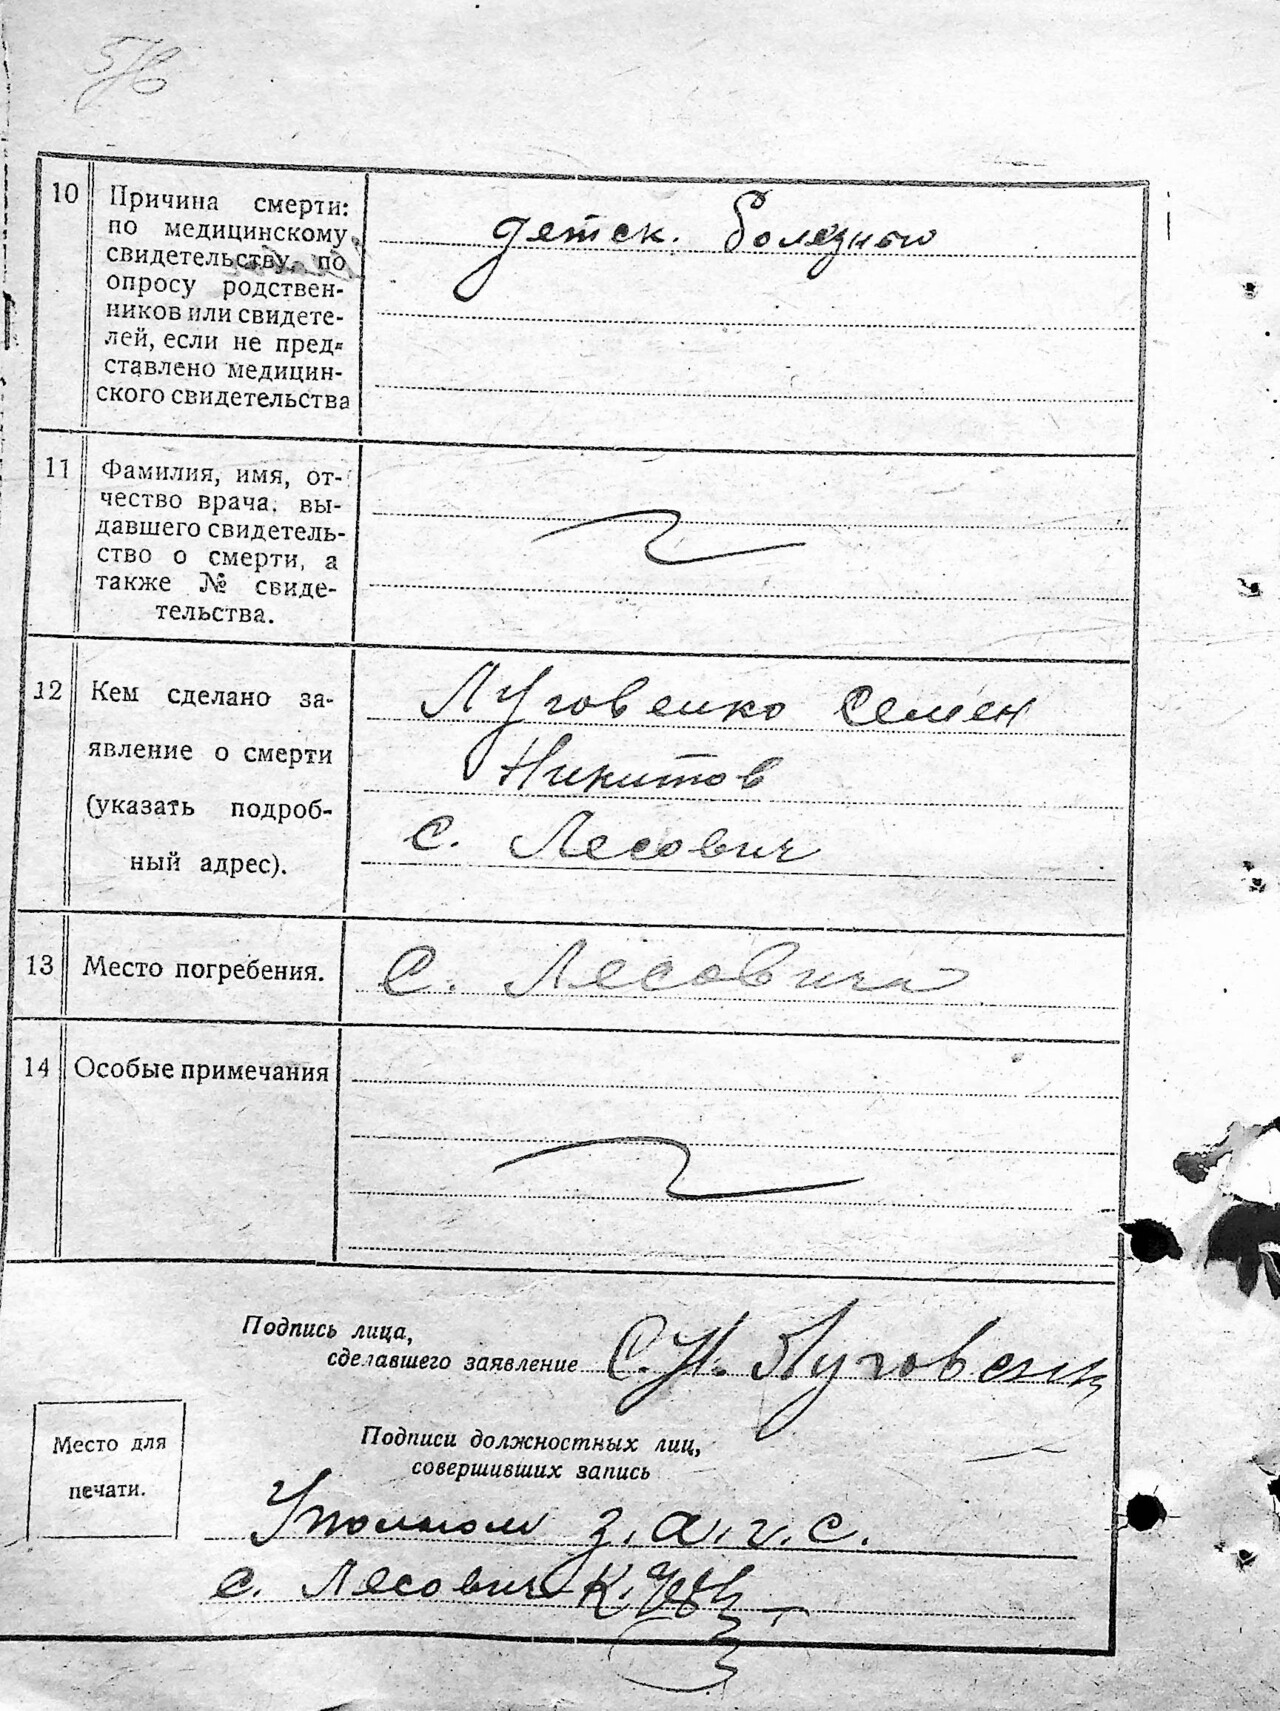 10
Причина смерти:
по медицинскому
свидетельству, по
опросу родствен-
ников или свидете-
лей, если не пред-
ставлено медицин-
ского свидетельства
детск. Болезнью
11
Фамилия, имя, от-
чество врача, вы-
давшего свидетель-
ство о смерти, а
также № свиде-
тельства.
12
Кем сделано за-
явление о смерти
(указать подроб-
ный адрес).
Луговенко Семен
Никитов
с. Лесович
13
Место погребения.
С. Лесовичи
14
Особые примечания
Подпись лица,
сделавшего заявление С.Н. Луговенк
Место для
печати.
Подписи должностных лиц,
совершивших запись
Уполном з.а.г.с.
с. Лесович К.